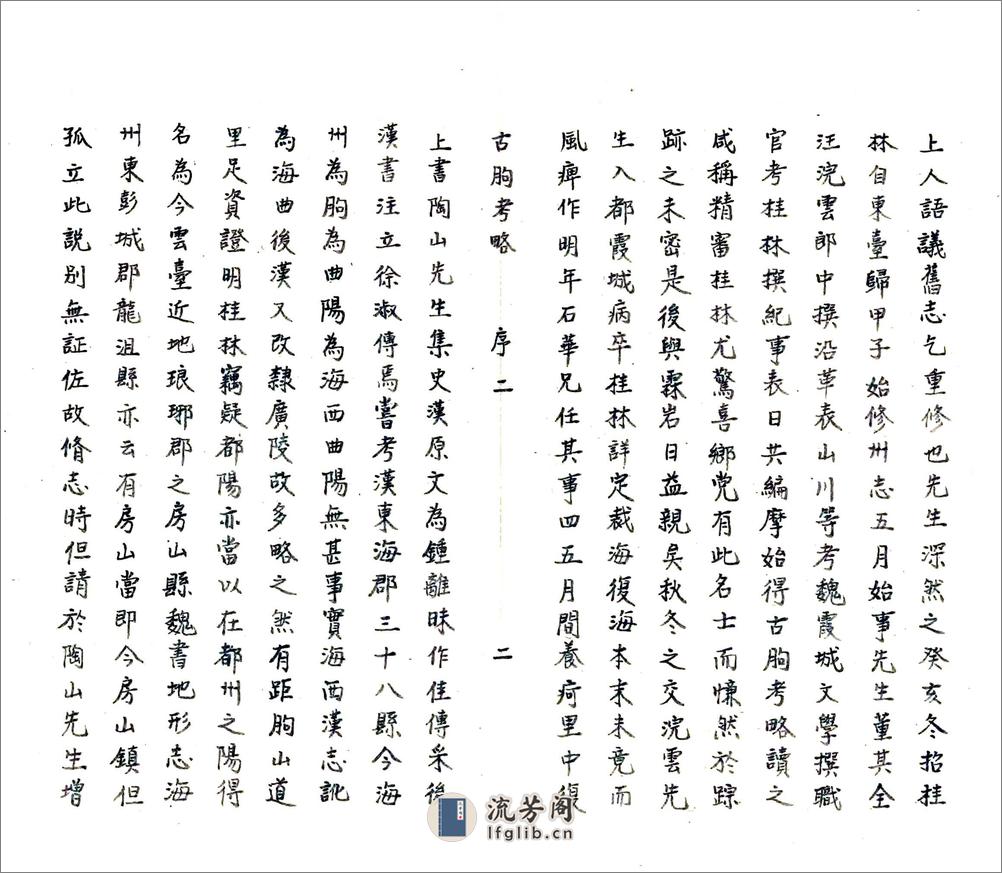 上人語議舊志乞重修也先生深然之癸亥冬招桂
林自東臺歸甲子始修州志五月始事先生董其全
汪浣雲郎中撰沿革表山川等考魏霞城文學撰職
官考桂林撰紀事表日共編摩始得古朐考略讀之
咸稱精審桂林尤驚喜鄉党有此名士而慊然於踪
跡之未密是後與霖岩日益親矣秋冬之交浣雲先
生入都霞城病卒桂林詳定裁海復海本末未竟而
風痺作明年石華兄任其事四五月間養疴里中復
古朐考略 序二 二
上書陶山先生集史漢原文為鍾離昧作佳傳采後
漢書注立徐淑傳焉嘗考漢東海郡三十八縣今海
州為朐為曲陽為海西曲陽無甚事實海西漢志訛
為海曲後漢又改隸廣陵故多略之然有距朐山道
里足資證明桂林竊疑都陽亦當以在都州之陽得
名為今雲臺近地琅琊郡之房山縣魏書地形志海
州東彭城郡龍沮縣亦云有房山當即今房山鎮但
孤立此説别無証佐故脩志時但請於陶山先生增
流芳阁
lfglib.cn